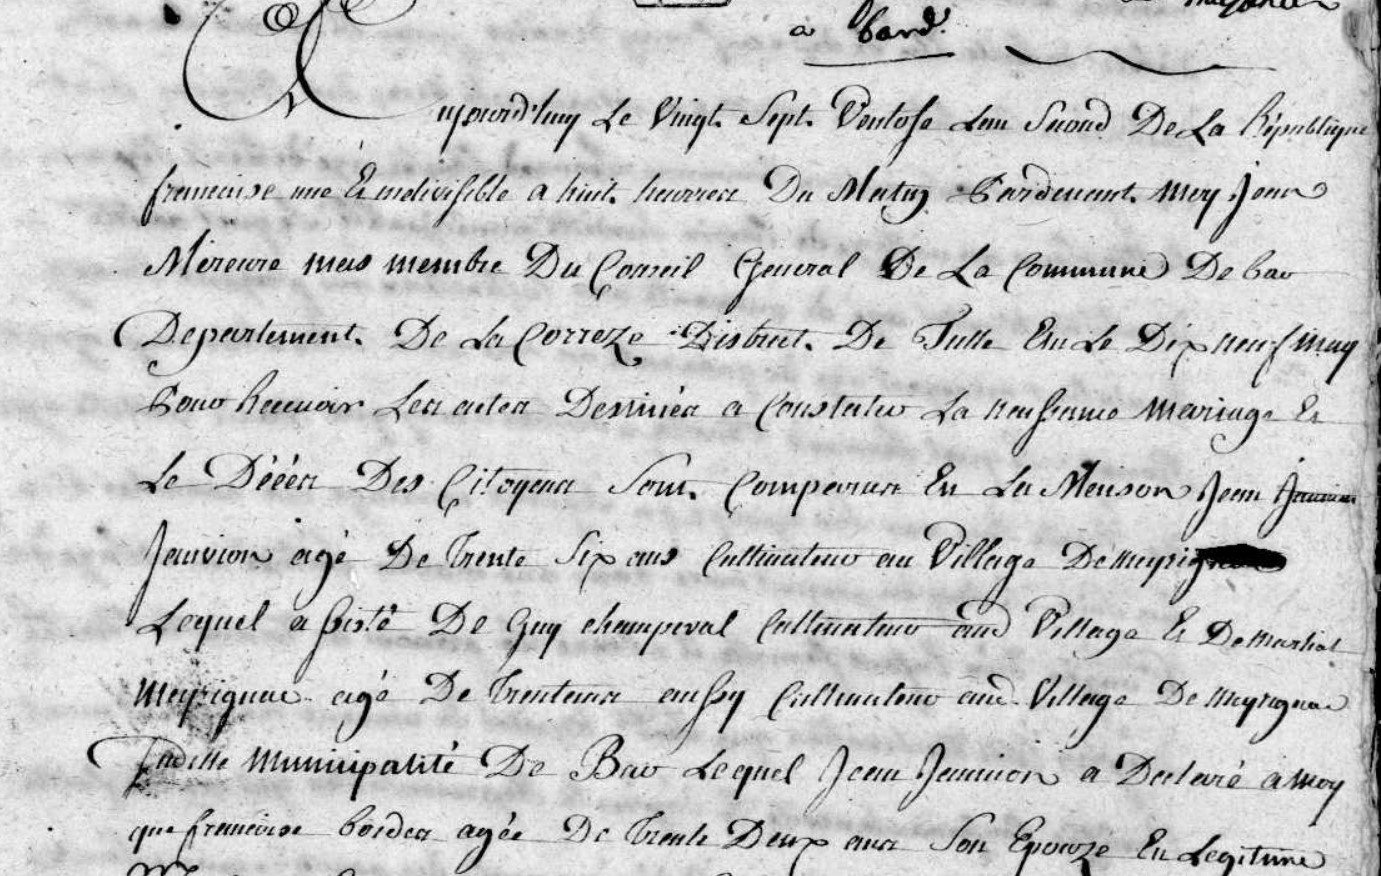 a bard.
Aujourd'huy Le Vingt Sept Ventose Lan Second De La République
francaise une Et indivisible a huit heures Du Matin Pardevant moy Jean
Mercure mas membre Du Conseil General De La Commune De bar
Departement De La Correze District De Tulle Elu Le Dix neuf may
Pour Recevoir Les actes Destinés a Constater La naissance Mariage Et
Le Décés Des Citoyens Sont Comparus En La Maison Jean
Jauvion agé De trente Six ans Cultivateur au Village De
Lequel assisté De Guy champeval Cultivateur aud Village Et De martial
Meyrignac agé De trente ans aussy Cultivateur aud Village De meyrignac
Laditte Municipalité De Bar Lequel Jean Jauvion a Declaré a moy
que francoise bordes agée De trente Deux ans Son Epouze En Legitime